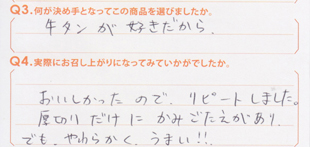 Q3.何が決め手となってこの商品を選びましたか。
牛タンが好きだから.
Q4.実際にお召し上がりになってみていかがでしたか。
おいしかったので、リピートしました。
厚切りだけにかみごたえがあり、
でも、やわらかく、うまい!!